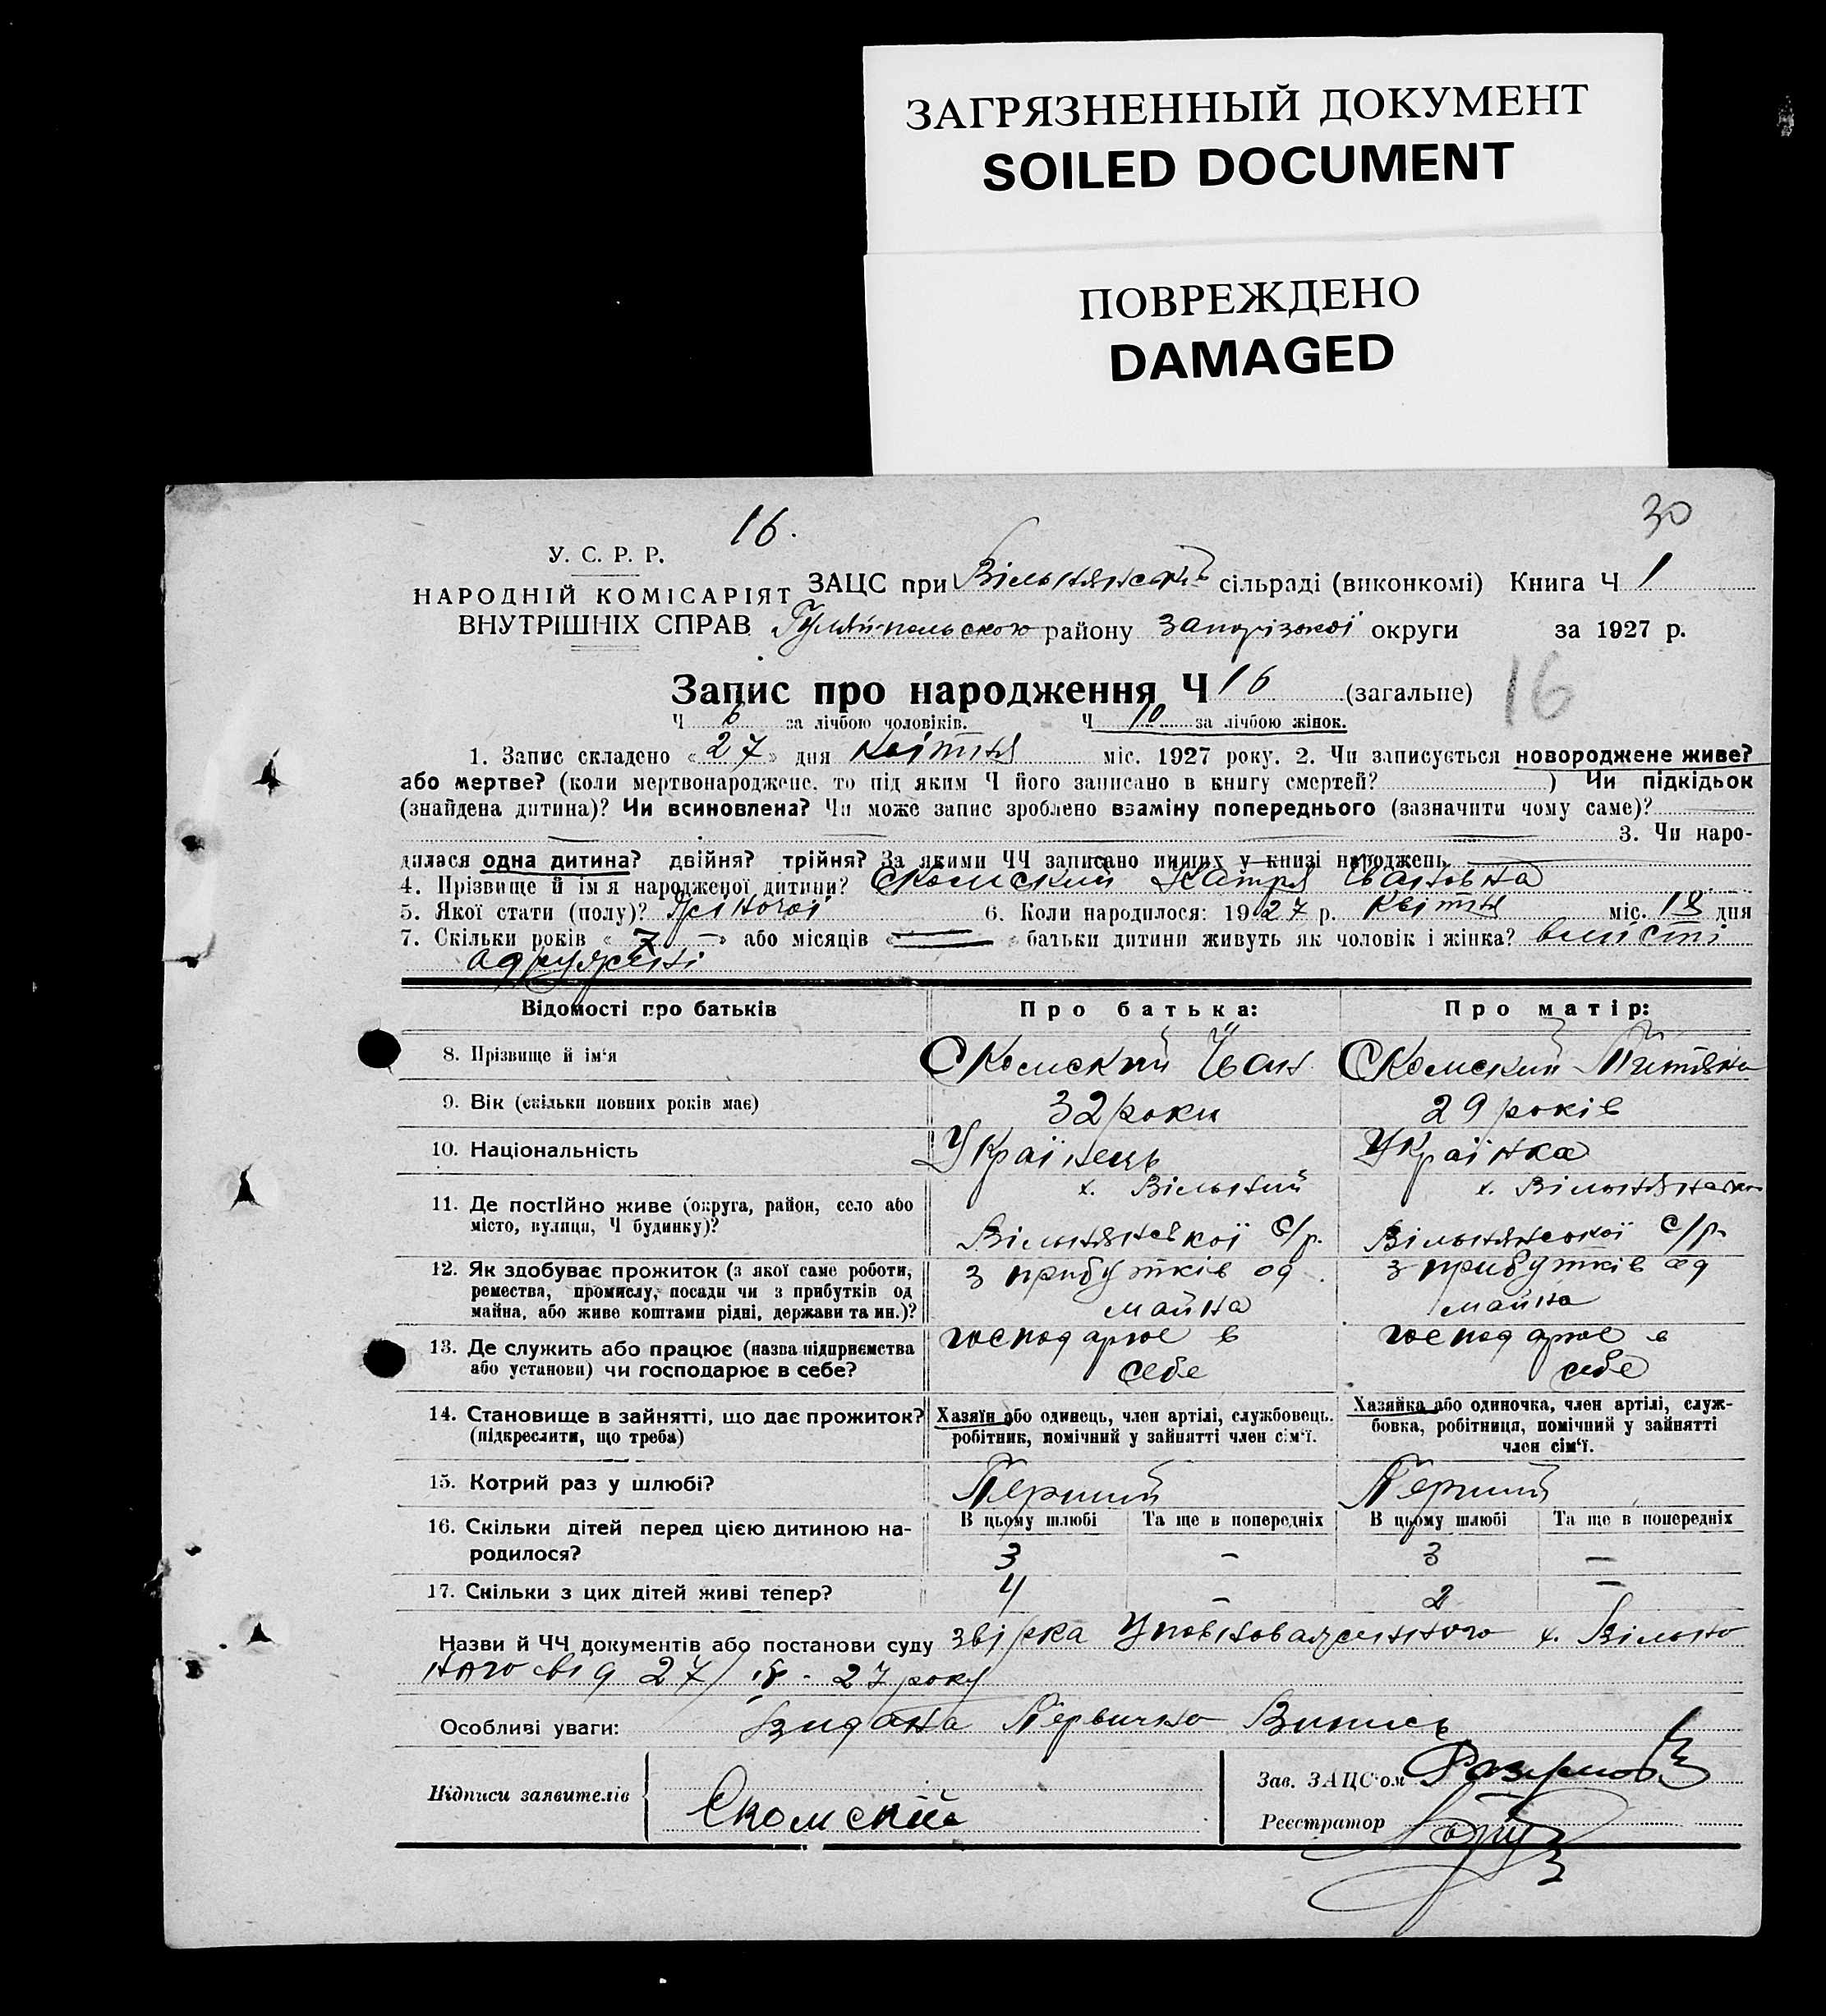 ЗАГРЯЗНЕННЫЙ ДОКУМЕНТ
SOILED DOCUMENT
ПОВРЕЖДЕНО
DAMAGED
16.
30
У. С. Р. Р.
НАРОДНІЙ КОМІСАРІЯТ
ВНУТРІШНІХ СПРАВ
ЗАЦС при Вільнянській сільраді (виконкомі) Книга Ч 1
Гуляй-польского району Запорізької округи за 1927 р.
Запис про народження Ч 16 (загальне)
16
Ч 6 за лічбою чоловіків. Ч 10 за лічбою жінок.
1. Запис складено «27» дня Квітня міс. 1927 року. 2. Чи записується новороджене живе?
або мертве? (коли мертвонароджене, то під яким Ч його записано в книгу смертей? ) Чи підкідьок
(знайдена дитина)? Чи всиновлена? Чи може запис зроблено взаміну попереднього (зазначити чому саме)?
3. Чи наро-
дилася одна дитина? двійня? трійня? За якими ЧЧ записано инших у книзі народжень
4. Прізвище й ім'я народженої дитини? Скомский Катря Івановна
5. Якої стати (полу)? Жіночої 6. Коли народилося: 1927 р. Квітня міс. 18 дня
7. Скільки років «7» або місяців « » батьки дитини живуть як чоловік і жінка? вмісті
одружені
Відомості про батьків Про батька: Про матір:
8. Прізвище й ім'я Скомский Іван Скомский
9. Вік (скільки повних років має) 32 роки 29 років
10. Національність Українець Українка
11. Де постійно живе (округа, район, село або
місто, вулиця, Ч будинку)?
х. Вільний
Вільнянської С/р.
х.
Вільнянської С/р.
12. Як здобуває прожиток (з якої саме роботи,
ремества, промислу, посади чи з прибутків од
майна, або живе коштами рідні, держави та ин.)?
з прибутків од
майна
з прибутків од
майна
13. Де служить або працює (назва підприємства
або установи) чи господарює в себе?
господарює в
себе
господарює в
себе
14. Становище в зайнятті, що дає прожиток?
(підкреслити, що треба)
Хазяїн або одинець, член артілі, службовець.
робітник, помічний у зайнятті член сім'ї.
Хазяйка або одиночка, член артілі, служ-
бовка, робітниця, помічний у зайнятті
член сім'ї.
15. Котрий раз у шлюбі? Перший Перший
16. Скільки дітей перед цією дитиною на-
родилося?
В цьому шлюбі Та ще в попередніх В цьому шлюбі Та ще в попередніх
3 – 3 –
17. Скільки з цих дітей живі тепер? 4 – 2 –
Назви й ЧЧ документів або постанови суду звірка Уповноваженного х. Вільно
ного від 27/ - 27 року
Особливі уваги: Видана Первично Випись
Підписи заявителів Скомский
Зав. ЗАЦС'ом
Реєстратор